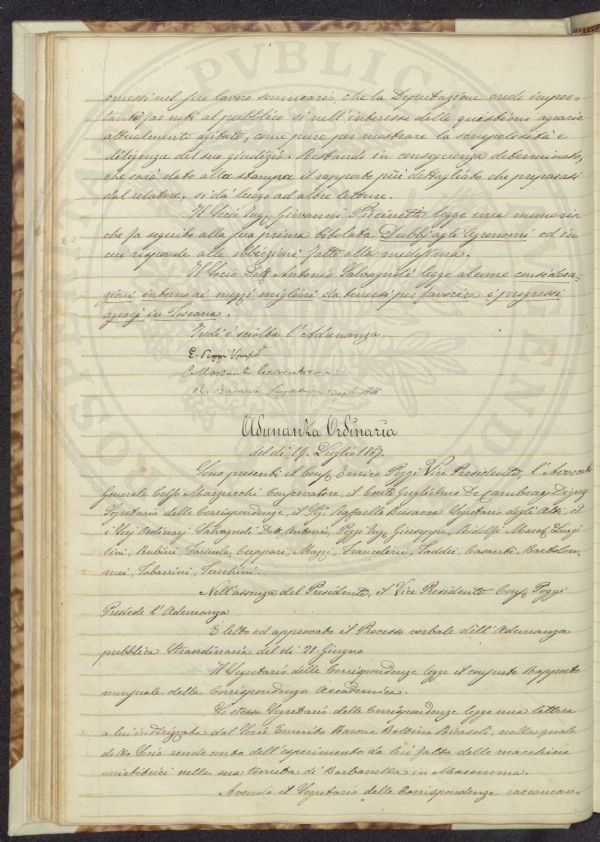 omessi nel suo lavoro sommario, che la Deputazione crede impor-
tante far noti al pubblico sì nell'interesse delle questioni agrarie
attualmente agitate, come pure per mostrare la scrupolosità e
diligenza del suo giudizio. Restando in conseguenza determinato,
che sarà dato alla stampa il rapporto più dettagliato che preparasi
dal relatore, si dà luogo ad altre letture.
Il Socio Ing. Giovanni legge una memoria
che fa seguito alla sua prima titolata Dubbj agli Agronomi ed in
cui risponde alle obiezioni fatte alla medesima.
Il Socio Dott. Antonio Salvagnoli legge alcune considera-
zioni intorno ai mezzi migliori da tenersi per favorire i progressi
agrarj in Toscana.
Indi è sciolta l'Adunanza.
E. Poggi
Adunanza Ordinaria
del dì 19. Luglio 1857.
Sono presenti il Consr. Enrico Poggi Vice Presidente, l'Avvocato
Generale Celso Marzucchi Conservatore, il Conte Guglielmo De Cambray Digny
Segretario delle Corrispondenze, il Sig. Raffaello Busacca Segretario degli Atti, ed
i Sigj Ordinarj Salvagnoli Dott. Antonio, Poggi Ing. Giuseppe, Ridolfi March. Luigi
Rubieri, Farinola, Cuppari, Franceschini, Taddei, Casanti, Bartolom-
mei, Tabarrini,
Nell'assenza del Presidente, il Vice Presidente Consr. Poggi
Presiede l'Adunanza
È letto ed approvato il Processo verbale dell'Adunanza
pubblica Straordinaria del dì 21. Giugno
Il Segretario delle Corrispondenze legge il consueto Rapporto
mensuale della Corrispondenza Accademica.
Lo stesso Segretario delle Corrispondenze legge una lettera
a lui indirizzata dal Socio Emerito Barone Bettino Ricasoli, nella quale
detto Socio rende conto dell'esperimento da lui fatto delle macchine
mietitrici nella sua tenuta di Barbanella in Maremma.
Avendo il Segretario delle Corrispondenze raccoman-
PVBLICAE
PROSPERITATI